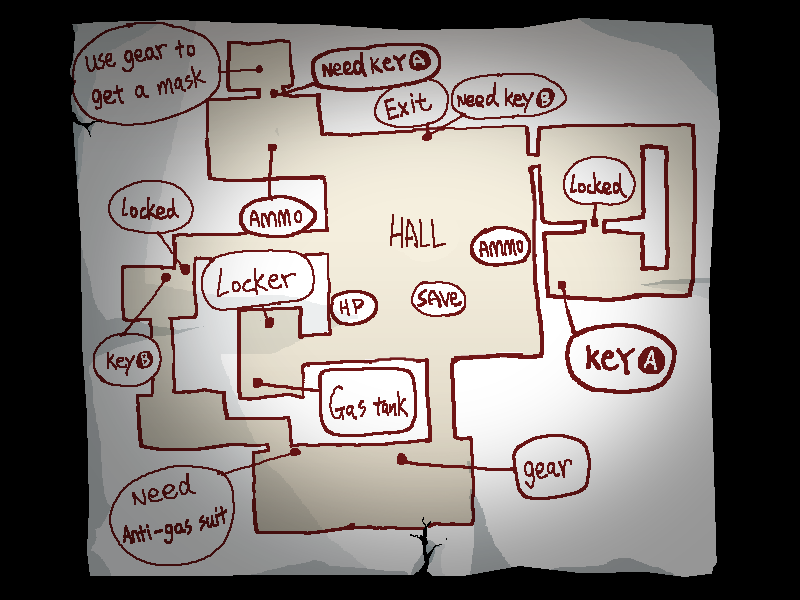 Use gear to
get a mask
Need key A
Exit
Need key B
Locked
AMMO
Locked
HALL
AMMO
Locker
HP
SAVE
key B
key A
Gas tank
gear
Need
Anti-gas suit